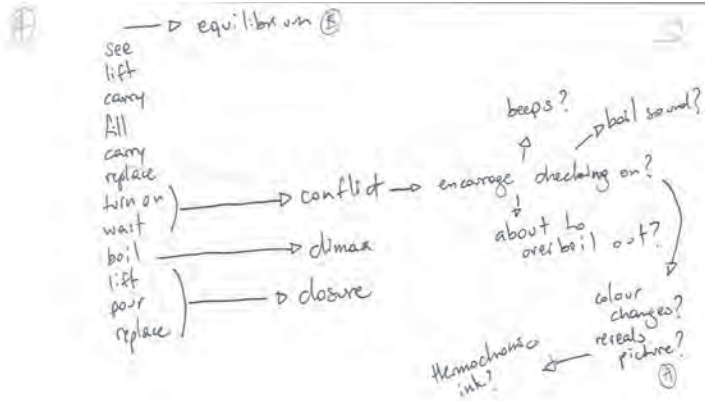 equilibrium B
see
lift
carry
fill
carry
replace
turn on
wait
boil
lift
pour
replace
conflict
climax
closure
encourage checking on?
beeps?
boil sound?
about to
over boil out?
colour
changes?
reveals
picture?
A
thermochromic
ink?